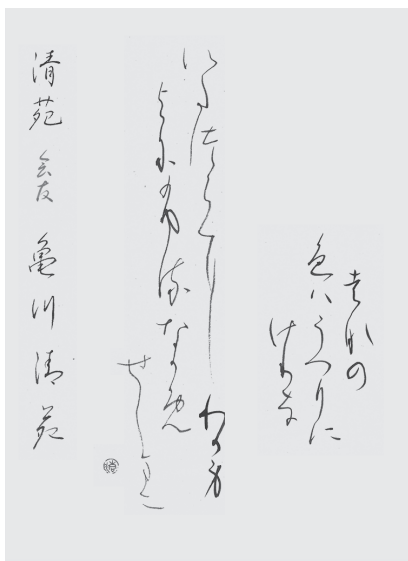 者那の
色ハうつりに
けりな
いたつらに わか身
よにふるなかめ
せしまに
清苑 会友 亀川清苑